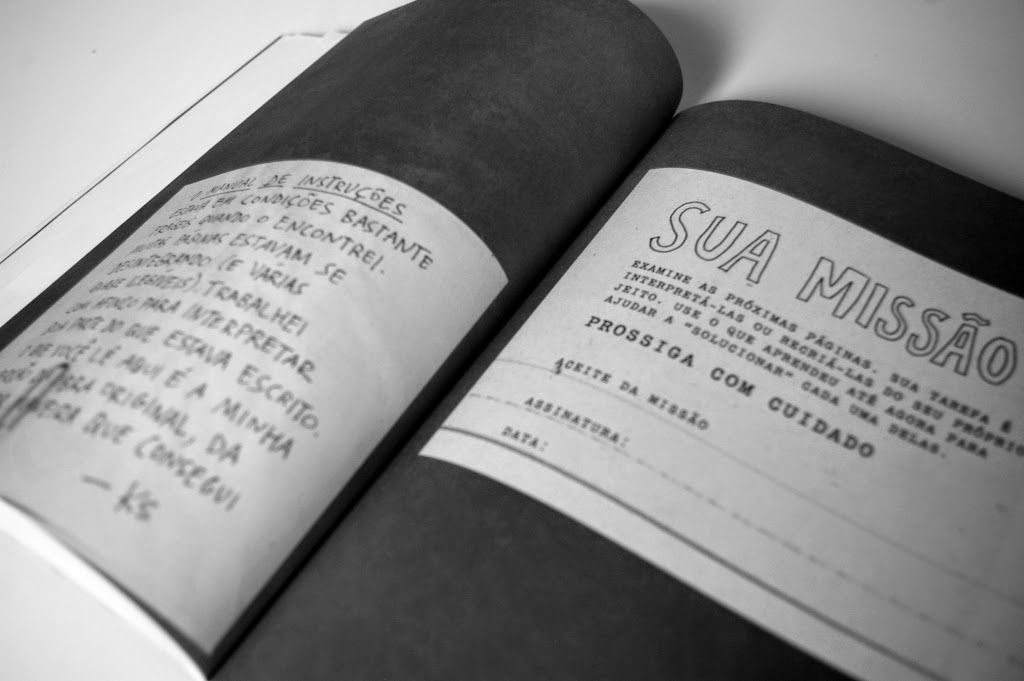 O MANUAL DE INSTRUÇÕES
ESTAVA EM CONDIÇÕES BASTANTE
FRÁGEIS QUANDO O ENCONTREI.
MUITAS PÁGINAS ESTAVAM SE
DESINTEGRANDO (E VÁRIAS
LEGÍVEIS). TRABALHEI
COM AFINCO PARA INTERPRETAR
BOA PARTE DO QUE ESTAVA ESCRITO.
VOCÊ LÊ AQUI É A MINHA
OBRA ORIGINAL, DA
QUE CONSEGUI
— KS
SUA MISSÃO
EXAMINE AS PRÓXIMAS PÁGINAS. SUA TAREFA É
INTERPRETÁ-LAS OU RECRIÁ-LAS DO SEU PRÓPRIO
JEITO. USE O QUE APRENDEU ATÉ AGORA PARA
AJUDAR A "SOLUCIONAR" CADA UMA DELAS.
PROSSIGA COM CUIDADO
ACEITE DA MISSÃO
ASSINATURA:
DATA: